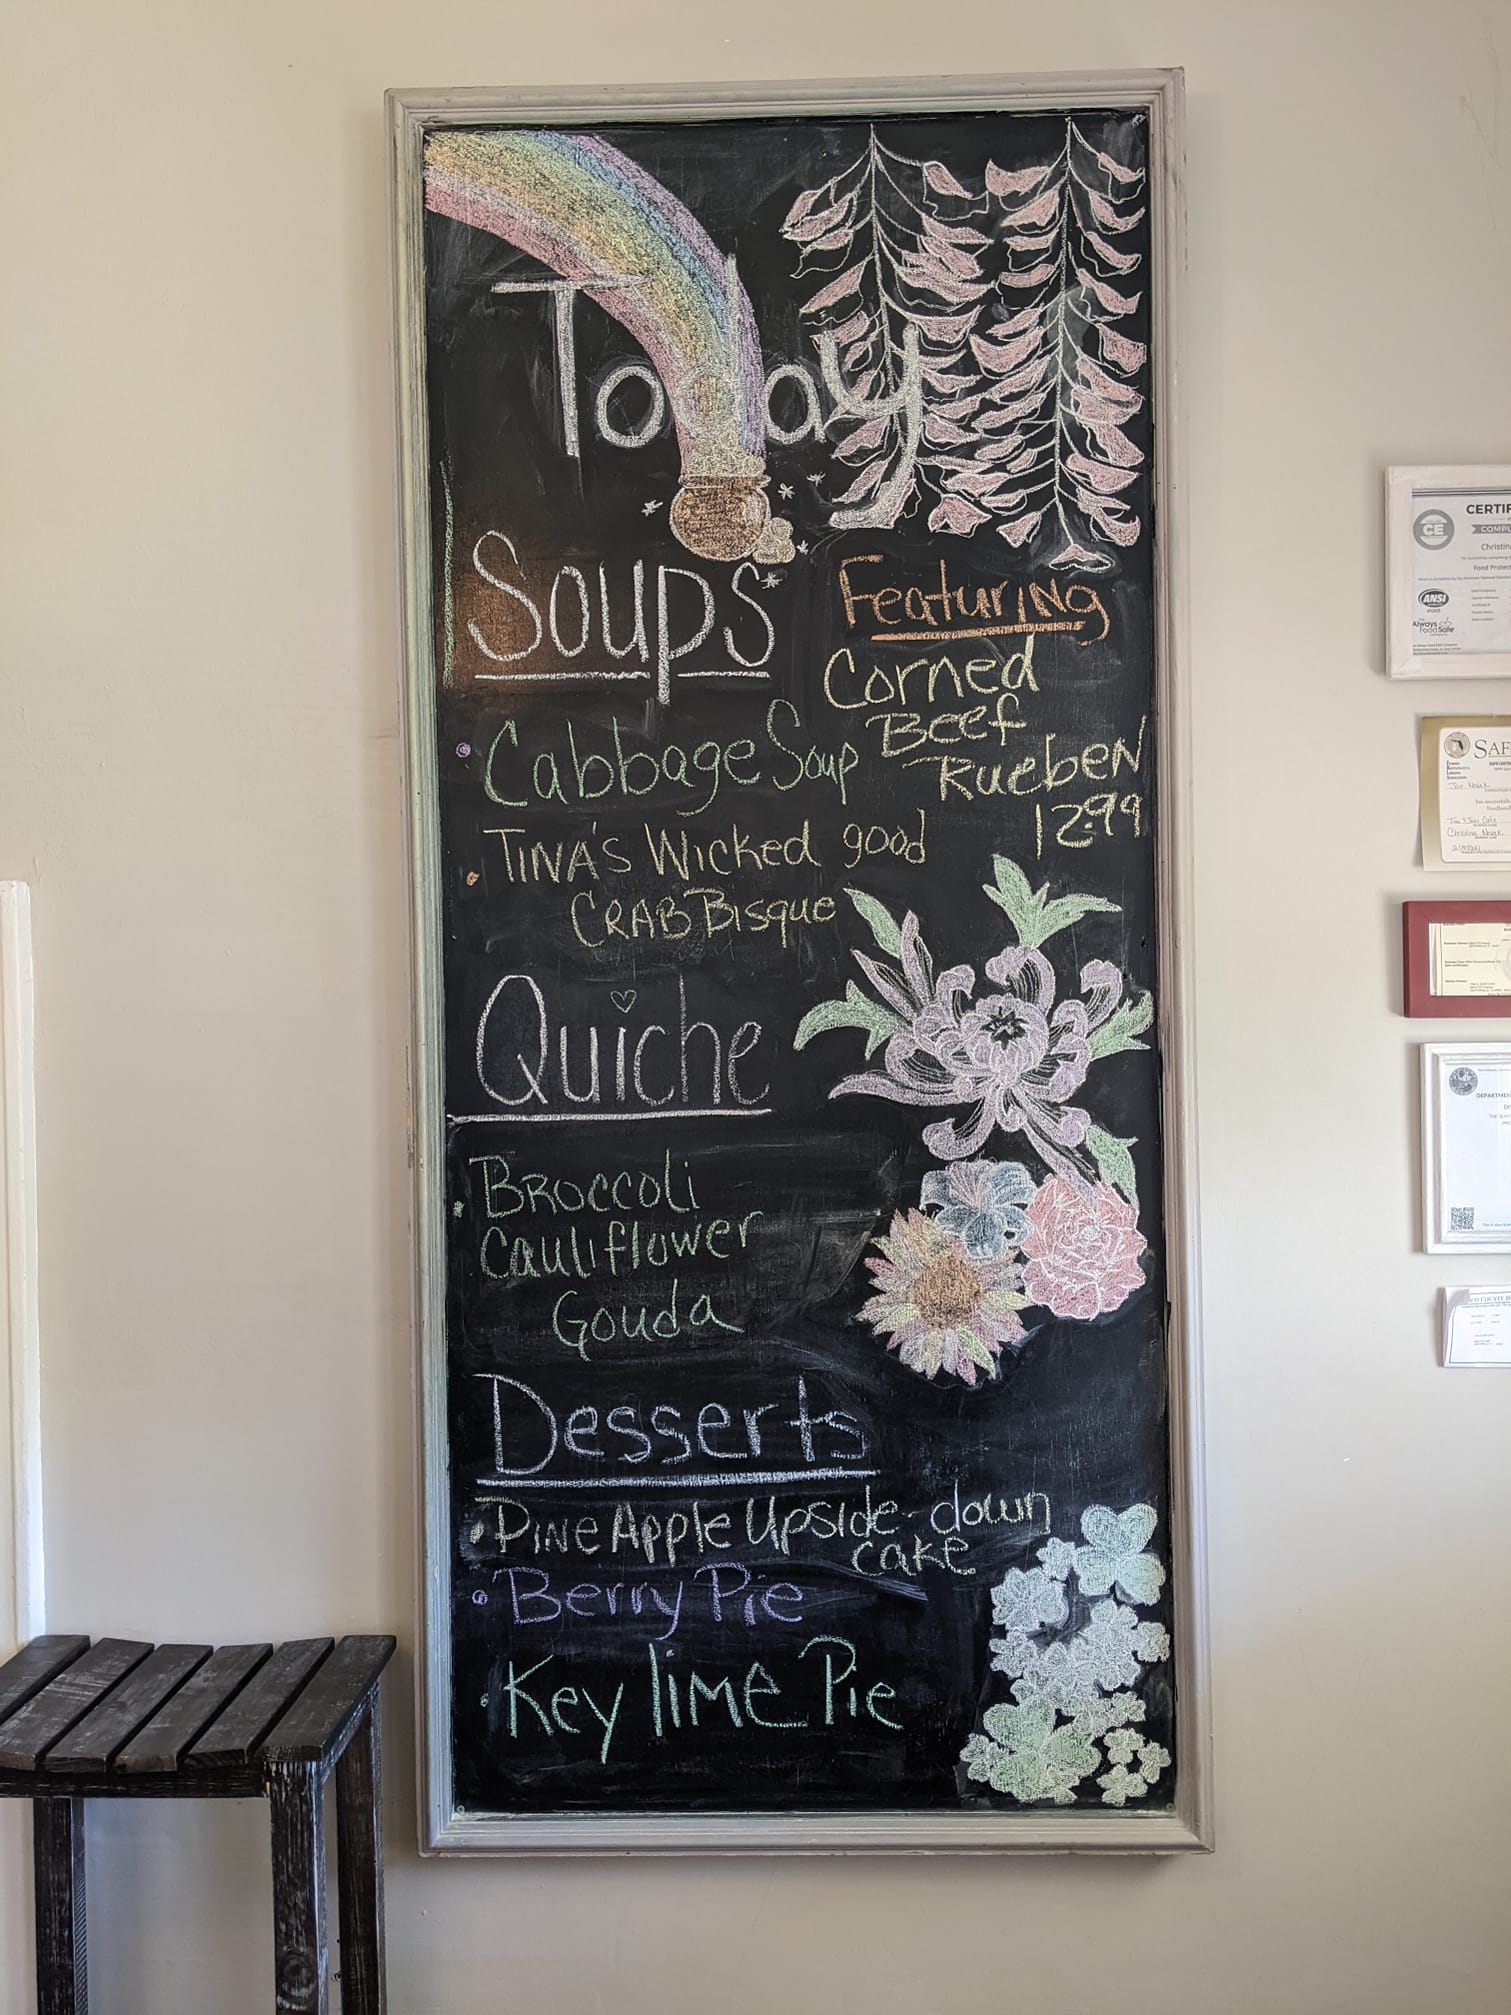 Today
Soups
Featuring
Corned
Beef
Rueben
12.99
Cabbage Soup
Tina's Wicked good
Crab Bisque
Quiche
Broccoli
Cauliflower
Gouda
Desserts
Pine Apple Upside-down
cake
Berry Pie
Key lime Pie
CE
Christina
Food Protec
ANSI
Always
Food Safe
SAF
Joe Novak
Christina Novak
DEPARTMEN